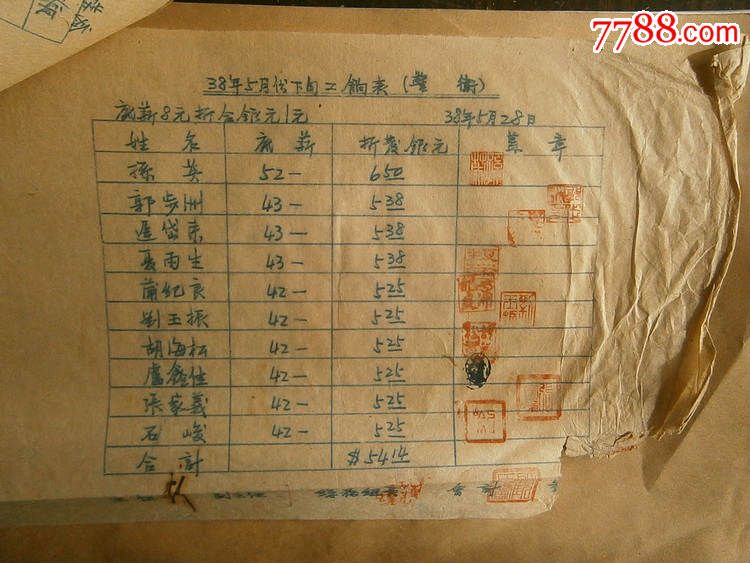 7788.com
38年5月份下旬工餉表(警衛)
底薪8元折合銀元1元 38年5月28日
姓名 底薪 折發銀元 蓋章
孫英 52— 650
郭步洲 43— 538
43— 538
夏雨生 43— 538
蒲紀良 42— 525
劉玉振 42— 525
胡海松 42— 525
盧鑫佳 42— 525
張家義 42— 525
石峻 42— 525
合計 $5414
會計